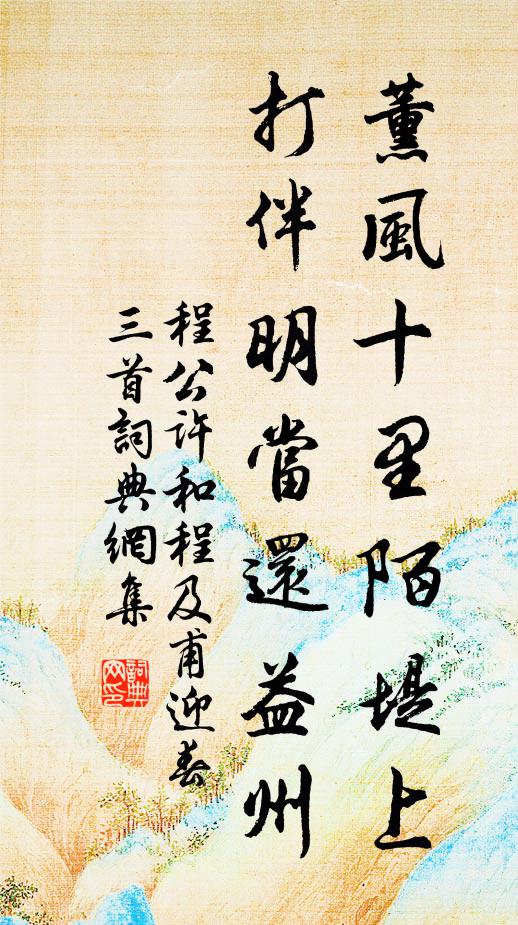 薰風十里陌堤上
打伴明當還益州
程公許和程及甫迎春
三首詞典網集
詞典
网印